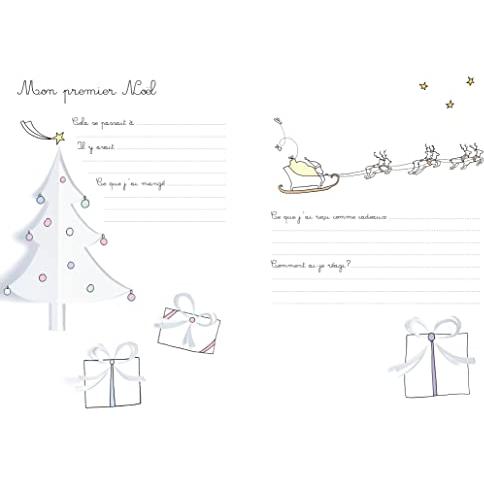 Mon premier Noël
Cela se passait à
Il y avait
Ce que j'ai mangé
Ce que j'ai reçu comme cadeaux
Comment ai-je réagi ?